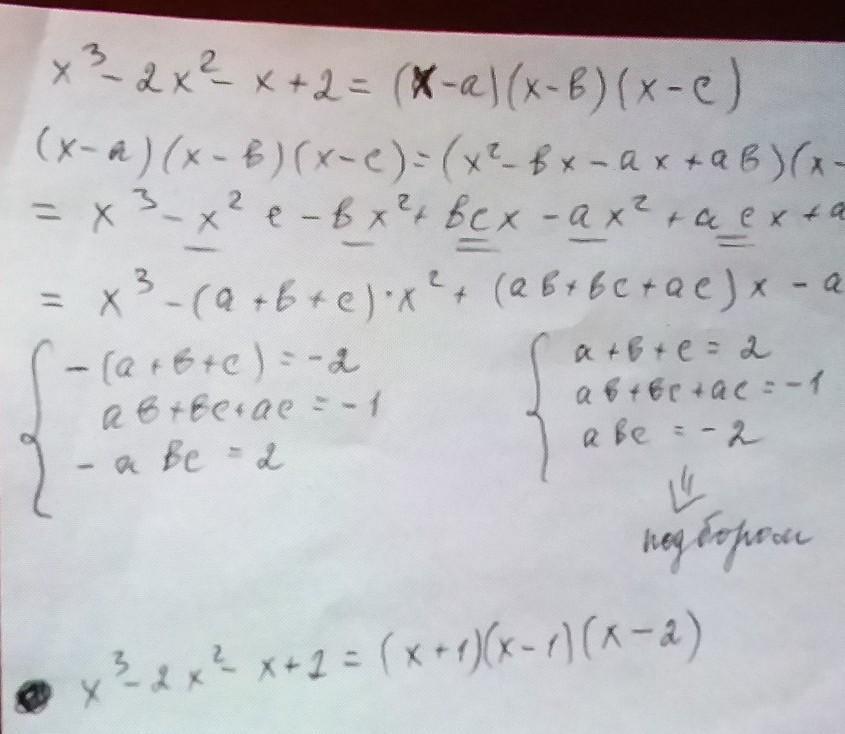 x³ - 2x² - x + 2 = (x - a)(x - в)(x - c)
(x - a)(x - в)(x - c) = (x² - вx - ax + aв)(x -
= x³ - x²c - вx² + вcx - ax² + acx + a
= x³ - (a + в + c)·x² + (aв + вc + ac)x - a
{ -(a + в + c) = -2
aв + вc + ac = -1
- aвc = 2
{ a + в + c = 2
aв + вc + ac = -1
aвc = -2
⇓
подбором
x³ - 2x² - x + 2 = (x + 1)(x - 1)(x - 2)